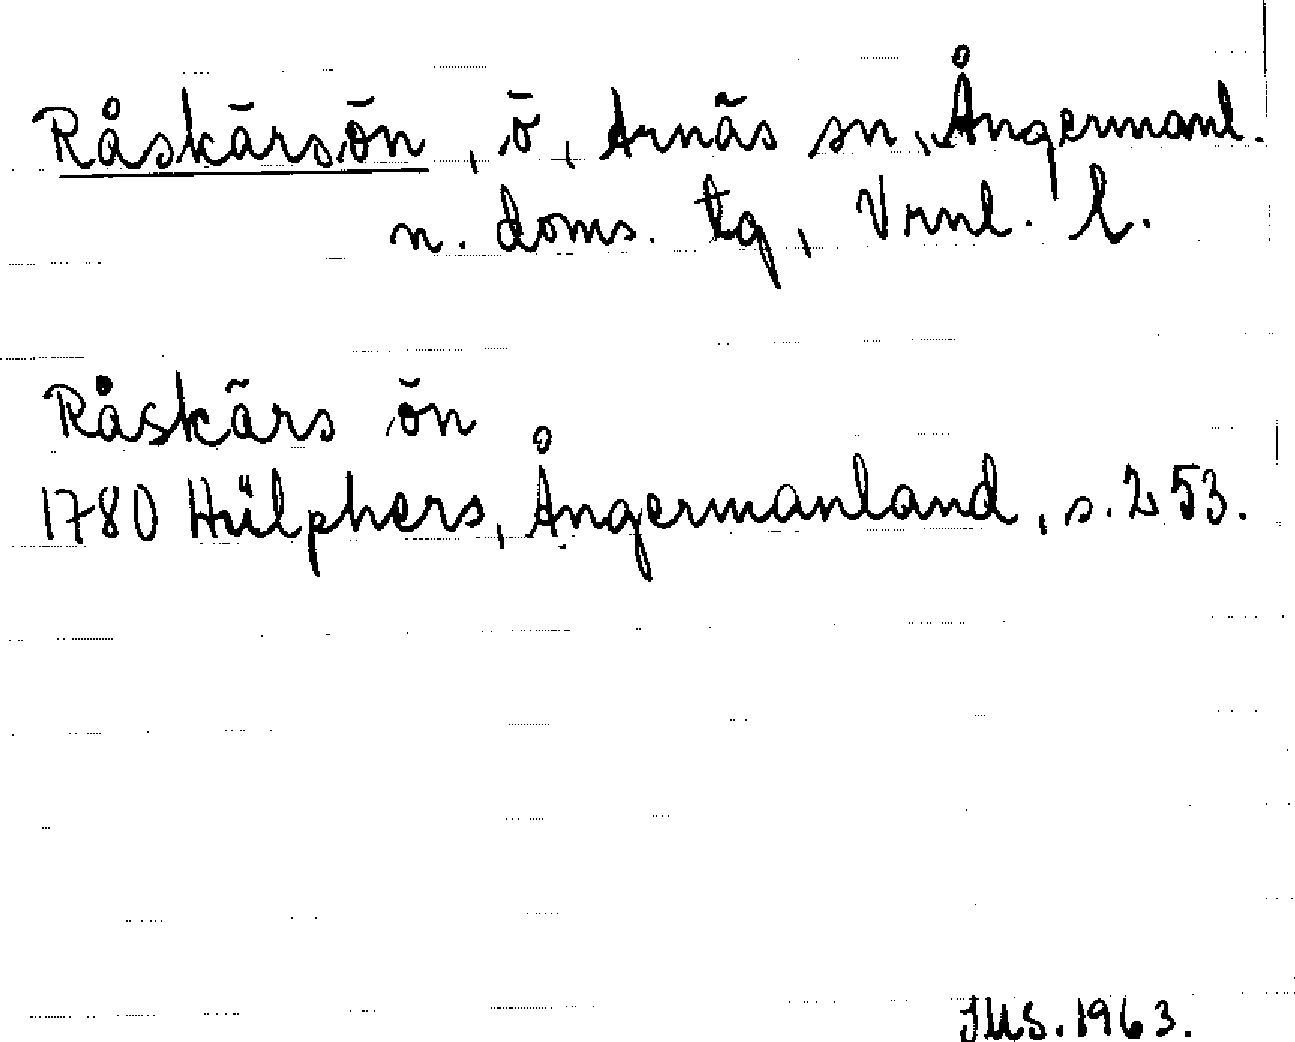 Råskärsön, ö, Arnäs sn, Ångermanl.
n. doms. tg, Vrnl. l.
Råskärs ön
1780 Hülphers, Ångermanland, s. 253.
JMS. 1963.